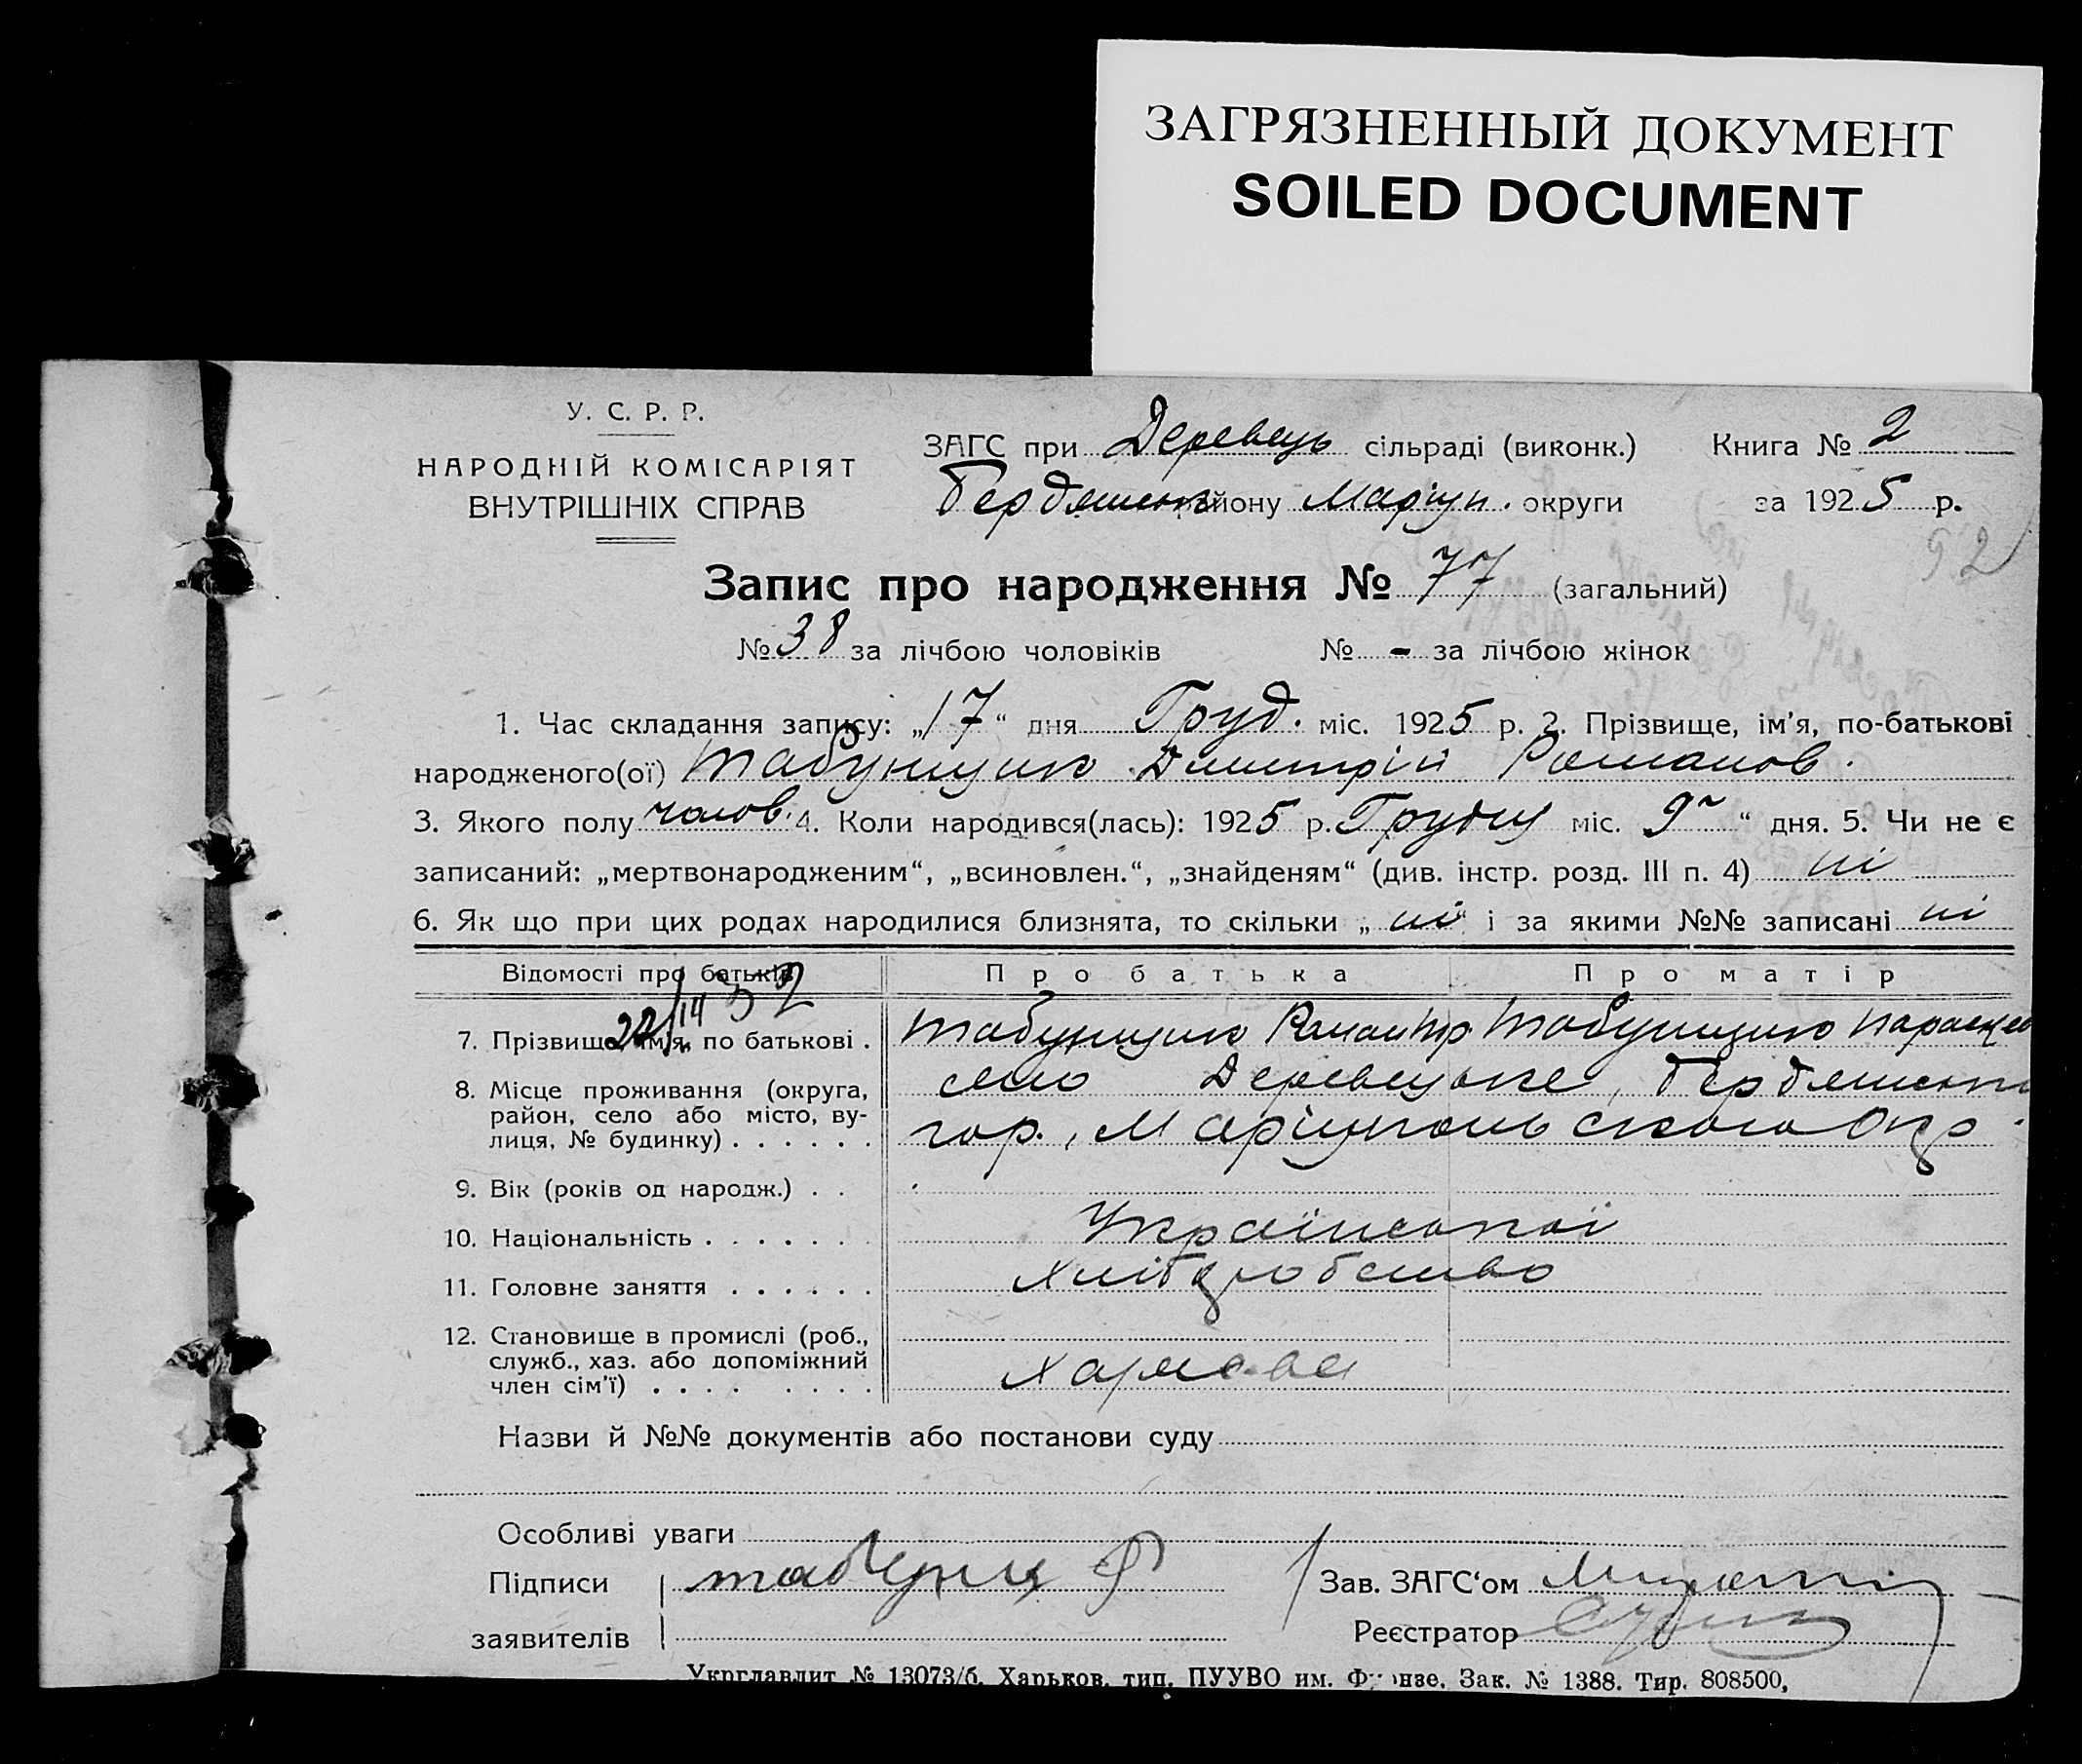 ЗАГРЯЗНЕННЫЙ ДОКУМЕНТ
SOILED DOCUMENT
У. С. Р. Р.
НАРОДНІЙ КОМІСАРІЯТ
ВНУТРІШНІХ СПРАВ
ЗАГС при Деревець сільраді (виконк.) Книга № 2
району Маріуп. округи за 1925 р.
92
Запис про народження № 77 (загальний)
№ 38 за лічбою чоловіків № - за лічбою жінок
1. Час складання запису: „17“ дня Груд. міс. 1925 р. 2. Прізвище, ім'я, по-батькові
народженого(ої) Табунщик Дмитрій Романов.
3. Якого полу чолов. 4. Коли народився(лась): 1925 р. Грудну міс. 9 “ дня. 5. Чи не є
записаний: „мертвонародженим“, „всиновлен.“, „знайденям“ (див. інстр. розд. III п. 4) ні
6. Як що при цих родах народилися близнята, то скільки „ ні “ і за якими №№ записані ні
Відомості про батьків Про батька Про матір
7. Прізвище, ім'я, по батькові . Табунщик Роман Табунщик
8. Місце проживання (округа, село Деревецьке,
район, село або місто, ву-
лиця, № будинку) . . . . . . Маріупольського Окр.
9. Вік (років од народж.) . .
10. Національність . . . . . . Української
11. Головне заняття . . . . . . Хліборобство
12. Становище в промислі (роб.,
служб., хаз. або допоміжний
член сім'ї) . . . . . . . .
Назви й №№ документів або постанови суду
Особливі уваги
Підписи Табунщ Р Зав. ЗАГС‘ом
заявителів Реєстратор
Укрглавлит № 13073/б. Харьков, тип. ПУУВО им. Фрунзе. Зак. № 1388. Тир. 808500,